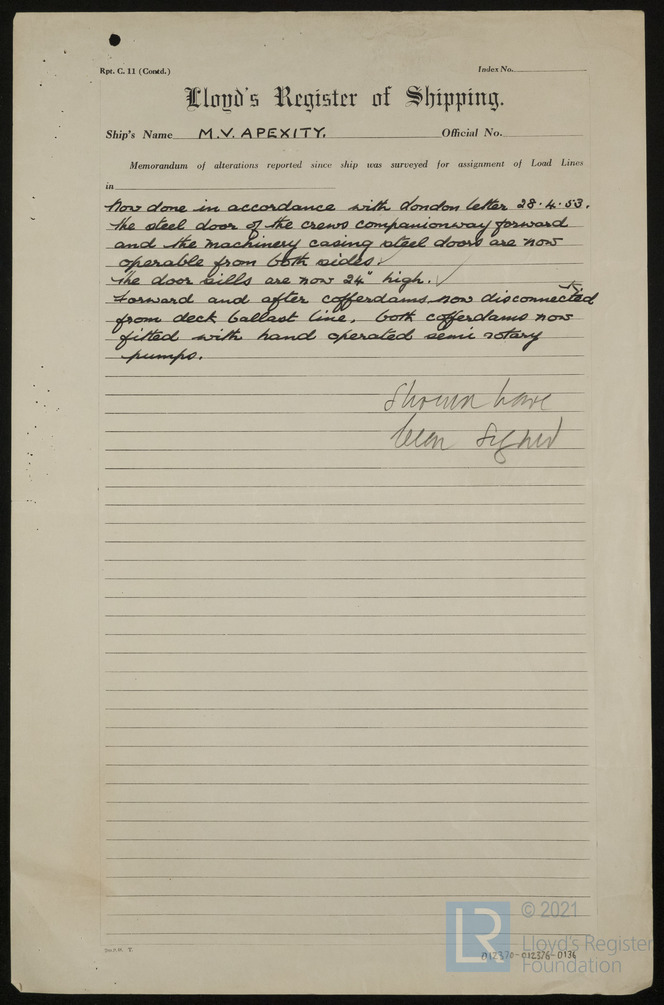 Rpt. C. 11 (Contd.)
Index No.
Lloyd's Register of Shipping.
Ship's Name M.V. APEXITY.
Official No.
Memorandum of alterations reported since ship was surveyed for assignment of Load Lines
in
Now done in accordance with London letter 28.4.53.
The steel door of the crews companionway forward
and the machinery casing steel doors are now
operable from both sides.
The door sills are now 24" high.
Forward and after cofferdams now disconnected
from deck ballast line, both cofferdams now
fitted with hand operated semi rotary
pumps.
Should have
been signed
© 2021
LR
Lloyd's Register
Foundation
012370-012376-0136